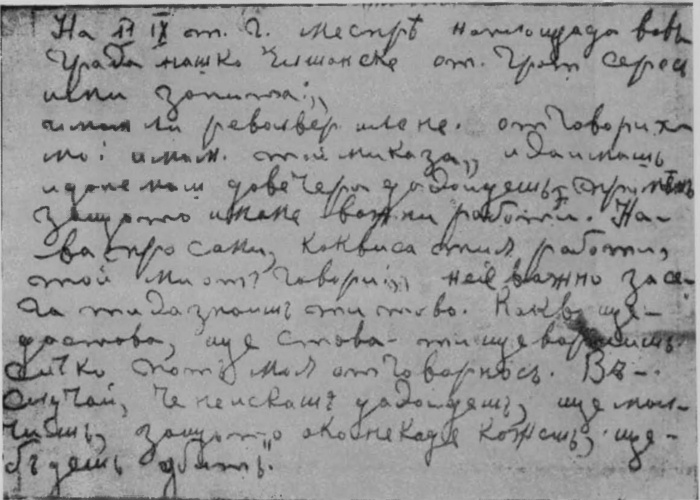 На 11 IX от. г. месирѣ наплощада вовъ
града нашко Чишанске от. град серес
ими запита:,,
имам ли револвер или не. отговорих
му: имам. той миказа,, идаимашъ
иданемам довечера дадойдешъ при мѣнъ
защото имаме важни работи. На-
ва просами, каквиса тия работи,
той миотъ говори:,, нее важно засе-
га тидазнаишъ титова. Какво ще-
даотова, ще стова- тищеваришишъ
сичко подъ моя отговорносъ. Въ-
случай, че неискашъ дадойдешъ, ще мъл-
чишъ, защото аконекаде кажешъ, ще-
бѫдешъ убитъ."